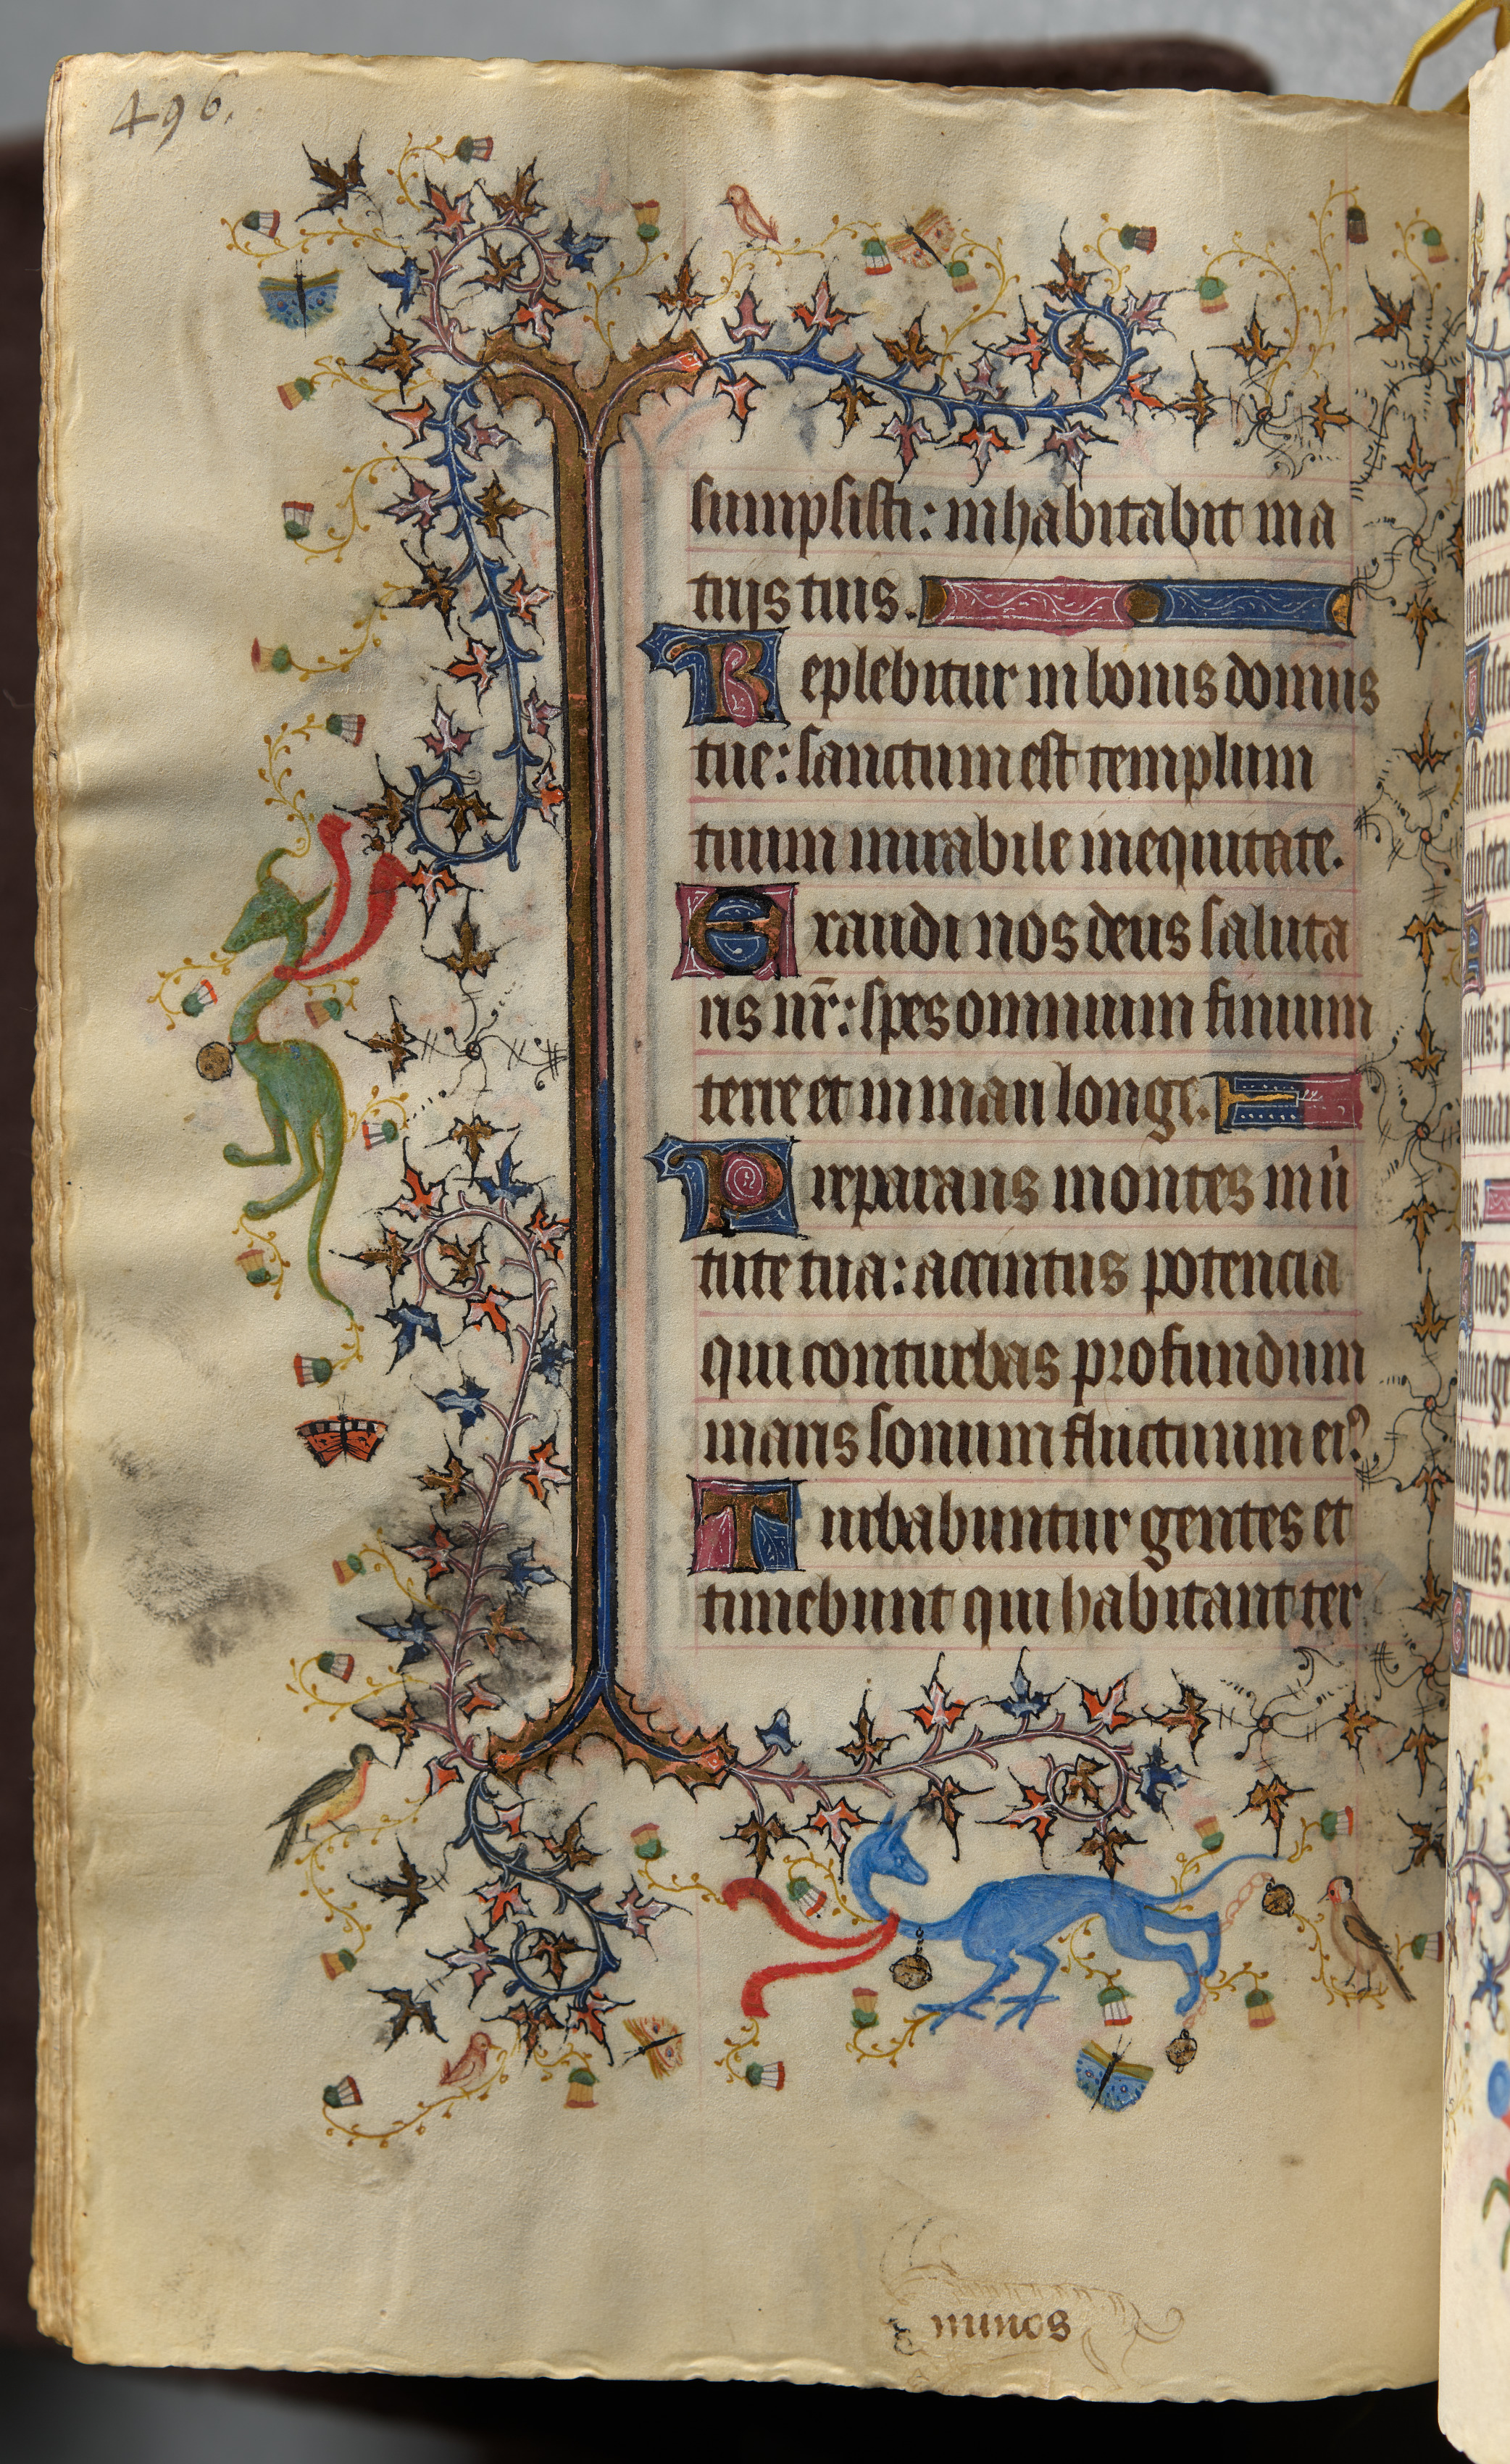 496.
sumpsisti: inhabitabit in a
trijs tuis.
Replebitur in bonis domus
tue: sanctum est templum
tuum mirabile in equitate.
Exaudi nos deus saluta
ris nr̄: spes omnium finium
terre et in mari longe.
Preparans montes in ūi
tute tua: accintus potencia
qui conturbas profundum
maris sonum fluctuum eiꝰ
Turbabuntur gentes et
timebunt qui habitant ter
minos